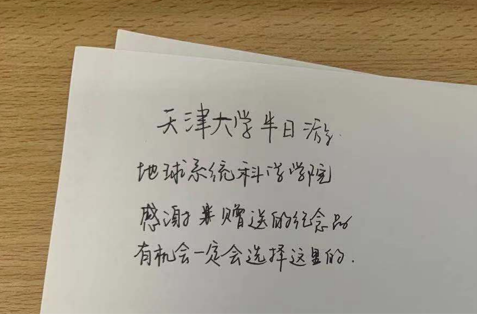 天津大学半日游
地球系统科学学院
感谢赠送的纪念品
有机会一定会选择这里的.